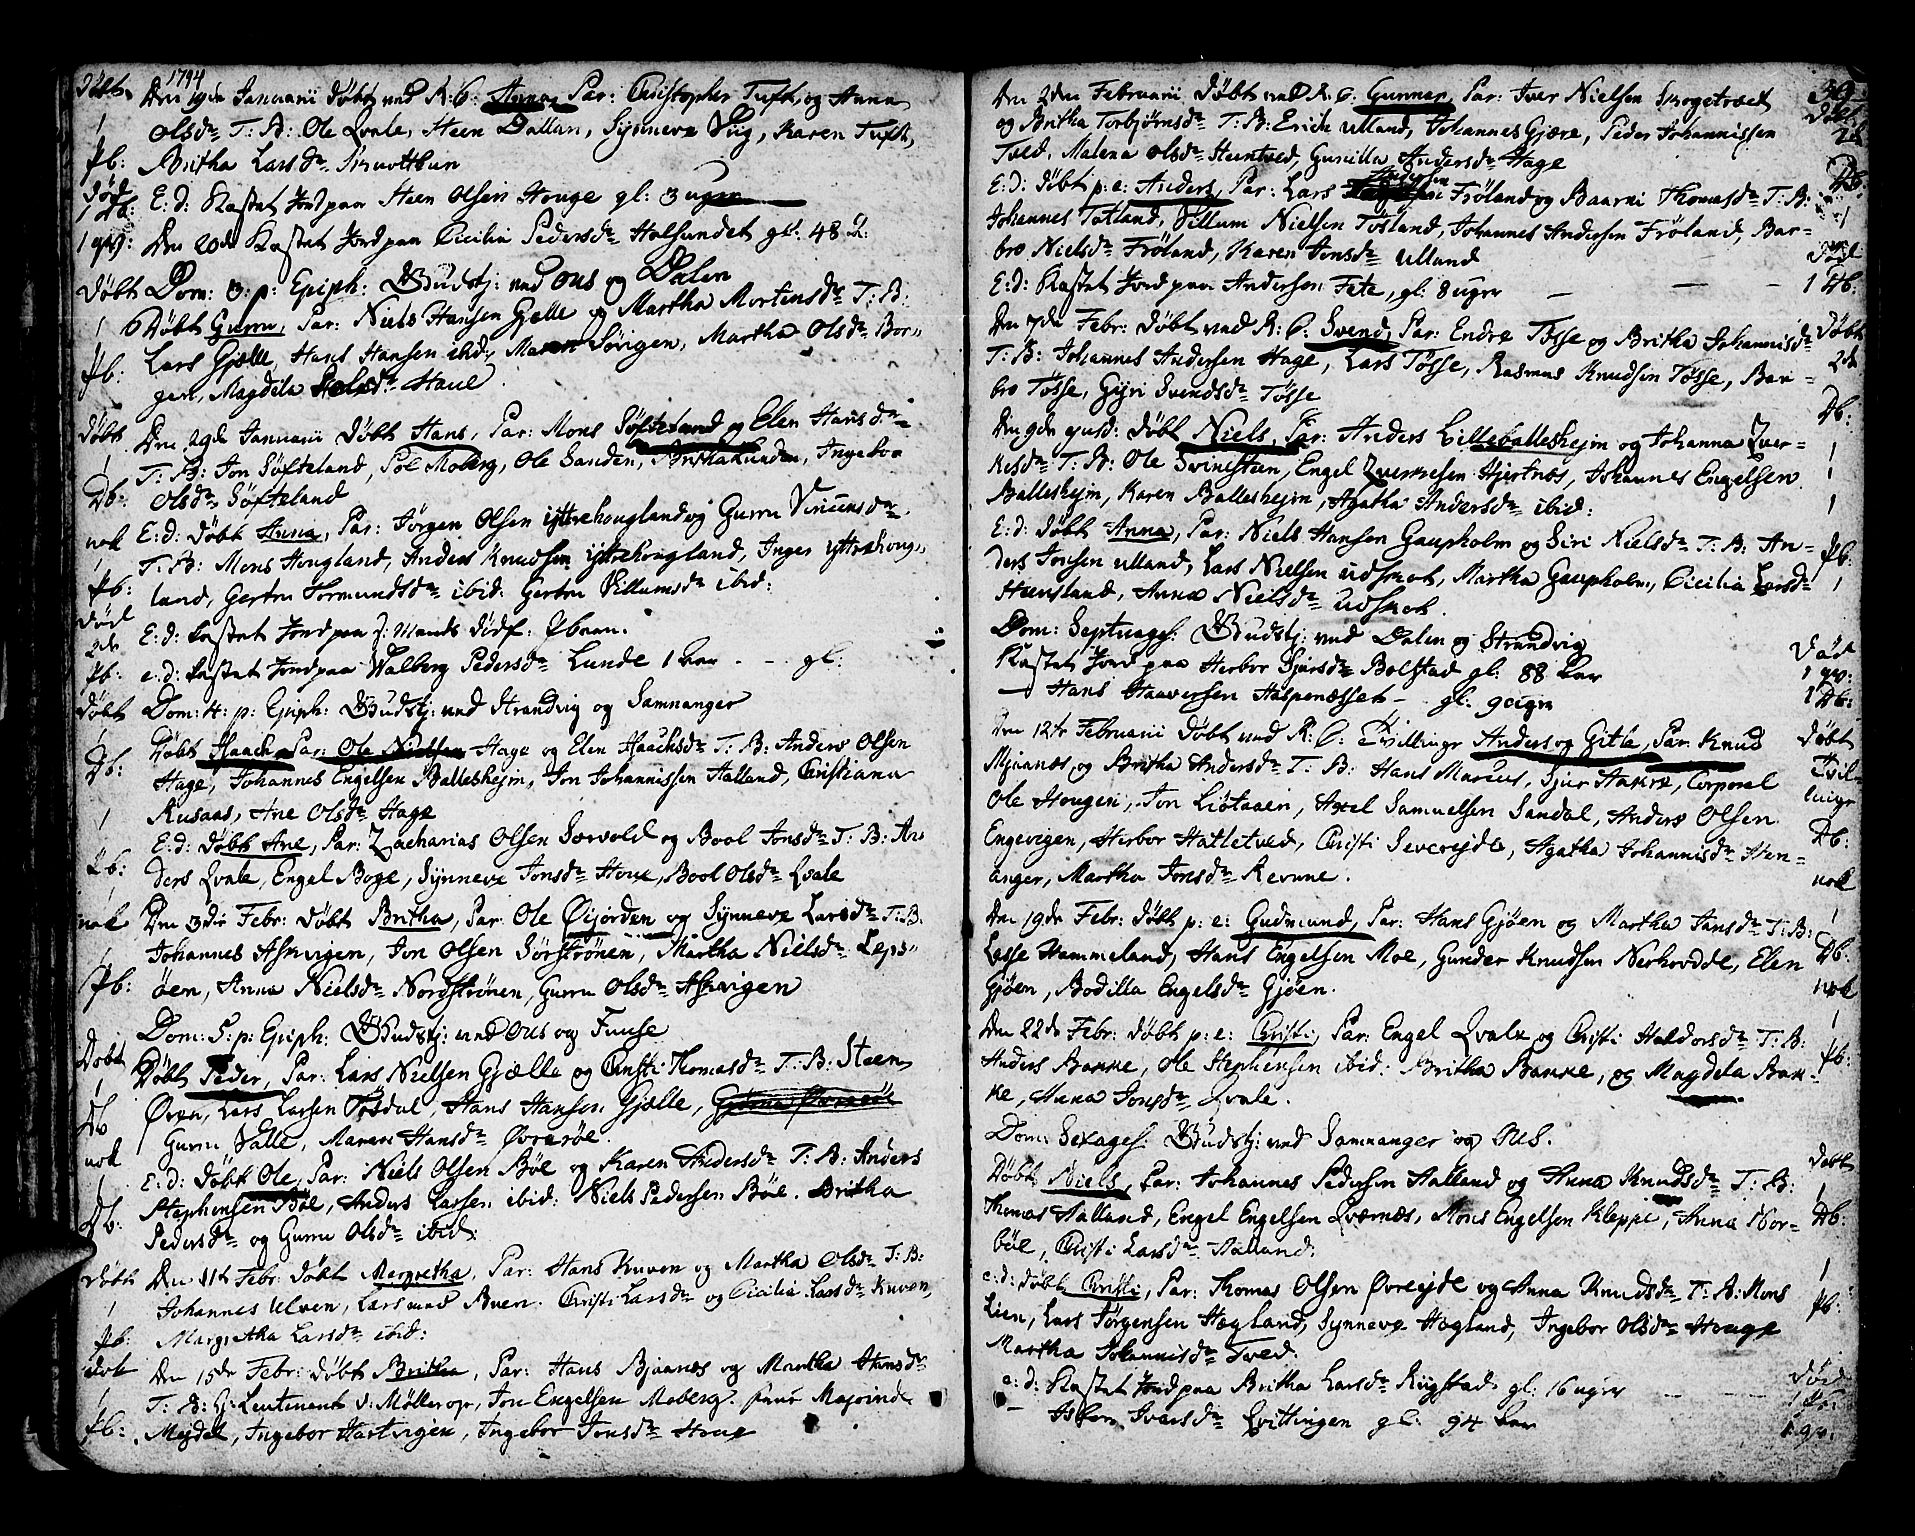 1794
Døbt Den 19de Januarii Døbt ved K: C: Anna, Par: Christopher Tuft og Anna
Olsdr T: B: Ole Qvale, Steen Dallan, Synneve Vug, Karen Tuft,
Pb: Britha Larsdr Skrotthun
Død E: d: Kastet Jord paa Steen Olsen Houge gl: 3 uger
1 qv: Den 20de Kastet Jord paa Cicilia Pedersdr Holsundet gl: 48
Døbt Dom: 3: p: Epiph: Gudstj: ved Ous og Dalen
Døbt Gurru, Par: Niels Hansen Gjelle og Martha Mortensdr T: B:
Pb: Lars Gjelle, Hans Hansen ibid:, Maren Söngen, Martha Olsdr Bor-
gen, Magdela Haue
Døbt Den 29de Januarii Døbt Hans, Par: Mons Söfteland og Elen Hansdr
T: B: Jon Söfteland, Pol Moberg, Ole Sanden, Ingebor
Db: Olsdr Söfteland
nok E: d: Døbt Anna, Par: Jörgen Olsen ijttrehougland og Gurru Vincensdr
T: B: Mons Hougland, Anders Knudsen ijttrehougland, Inger ijttrehoug-
Pb: land, Gertru Tormundsdr ibid: Gertru Villumsdr ibid:
Død
2de E: d: Kastet Jord paa J: Mands dödf: Pbarn.
Pb: e: d: Kastet Jord paa Walberg Pedersdr Lunde 1 Aar - gl:
Døbt Dom: 4: p: Epiph: Gudstj: ved Strandvig og Samnanger
Db: Døbt Haach Par: Ole Nielsen Hage og Elen Haachsdr T: B: Anders Olsen
Hage, Johannes Engelsen Ballesheim, Jon Johannissen Aalland, Christiana
Rusaas, Ane Olsdr Hage
E: d: Døbt Ane, Par: Zacharias Olsen Sörvold og Bool Jonsdr T: B: An
Pb: ders Qvale, Engel Boge, Synneve Jonsdr Houe, Bool Olsdr Qvale
nok Den 3die Febr: Døbt Britha, Par: Ole Øijorden og Synneve Larsdr T: B:
Johannes Askvigen, Jon Olsen Sörströnen, Martha Nielsdr Leps-
Pb: öen, Anna Nielsdr Nordströnen, Gurru Olsdr Askvigen
Dom: 5: p: Epiph: Gudstj: ved Ous og Fuuse
Døbt Døbt Peder, Par: Lars Nielsen Gjælle og Christi Thomasdr T: B: Steen
Db Øren, Lars Larsen Tösdal, Hans Hansen Gjelle,
nok Gurru Valle, Maren Hansdr Övreröe.
E: d: Døbt Ole, Par: Niels Olsen Böe og Karen Andersdr T: B: Anders
Db: Stephensen Böe, Anders Larsen ibid: Niels Pedersen Böe. Britha
Pedersdr og Gurru Olsdr ibid:
Døbt Den 11te Febr: Døbt Margretha, Par: Hans Kuven og Martha Olsdr T: B:
Johannes Ulven, Lars Buen. Christi Larsdr og Cicilia Larsdr Kuven,
Pb: Margretha Larsdr ibid:
Døbt Den 15de Febr: Døbt Britha, Par: Hans Bjaanes og Martha Hansdr
T: B: H: Leutenent v: Möllerop, Jon Engelsen Moberg. frue Majorinde
Pb: Mejdel, Ingebor Hartvigen, Ingebor Jonsdr Houge
39.
Den 2den Februarii Døbt ved K: C: Gunner, Par: Iver Nielsen Skogetvedt Døbt
og Britha Torbjörnsdr T: B: Erich Ulland, Johannes Gjære, Peder Johannissen 2de
Tved. Malena Olsdr Steentved, Gunilla Andersdr Hage Db:
E: d: Døbt p: e: Anders, Par: Lars Andersen Fröland og Baarni Thomasdr T: B:
Johannes Totland, Villum Nielsen Tösland, Johannes Andersen Fröland, Bar-
bro Nielsdr Fröland, Karen Jonsdr Ulland Död
E: d: Kastet Jord paa Andersen Fete, gl: 8 uger 1 Db:
Den 7de Febr: Døbt ved K: C: Svend, Par: Endre Tösse og Britha Johannisdr Døbt
T: B: Johannes Andersen Hage, Lars Tösse, Rasmus Knudsen Tösse, Bar- 2de
bro Tösse, Gyri Svendsdr Tösse Db:
Den 9de ejusd: Døbt Niels, Par: Anders Lilleballesheim og Johanna Qver-
kesdr T: B: Ole Svinesteen, Engel Qverkesen Hjertnæs, Johannes Engelsen
Ballesheim, Karen Ballesheim, Agatha Andersdr ibid:
E: d: Døbt Anna, Par: Niels Hansen Gaupholm og Siri Nielsdr T: B: An- Pb:
ders Jonsen Ulland, Lars Nielsen Udskot, Martha Gaupholm, Cicilia Larsdr
Heensland, Anna Nielsdr Udskot.
Dom: Septuages: Gudstj: ved Dalen og Strandvig Död
Kastet Jord paa Herbor Sjursdr Bolstad gl: 88 Aar 1 qv:
— Hans Haaversen Haspenæsset — gl: 9 uger 1 Db:
Den 12te Februarii Døbt ved K: C: Tvillinger Anders og Gitle, Par: Knud Døbt
Mjuanæs og Britha Andersdr T: B: Hans Marcus, Sjur Hakre, Corporal Tvil-
Ole Hougen, Jon Liötaaen, Axel Samuelsen Sandal, Anders Olsen linger
Engevigen, Herbor Hatletved, Christi Severejde, Agatha Johannisdr Sten- Db:
anger, Martha Jonsdr Revne. nok
Den 19de Febr: Døbt p: e: Gudmund, Par: Hans Gjöen og Martha Jansdr T: B:
Lasse Hammeland, Hans Engelsen Moe, Gunder Knudsen Nerhovdde, Elen Db:
Gjöen, Bodilla Engelsdr Gjöen. nok
Den 22de Febr: Døbt p: e: Christi, Par: Engel Qvale og Christi Haldorsdr T: B:
Anders Bakke, Ole Stephensen ibid: Britha Bakke, og Magdela Bak- Pb:
ke, Anna Jonsdr Qvale.
Dom: Sexages: Gudstj: ved Samnanger og Ous.
Døbt Niels, Par: Johannes Pedersen Aalland og Anna Knudsdr T: B: Døbt
Thomas Aalland, Engel Engelsen Qværnæs, Mons Engelsen Kleppe, Anna Nor- Db:
böe, Christi Larsdr Aalland.
e: d: Døbt Christi, Par: Thomas Olsen Övrejde og Anna Knudsdr T: B: Mons
Lien, Lars Jörgensen Hægland, Synneve Hægland, Ingebor Olsdr Houge Pb:
Martha Johannisdr Tved.
e: d: Kastet Jord paa Britha Larsdr Rugstad gl: 16 uger Död
— Isbor Ivarsdr Qvittingen gl: 94 Aar 1 qv: